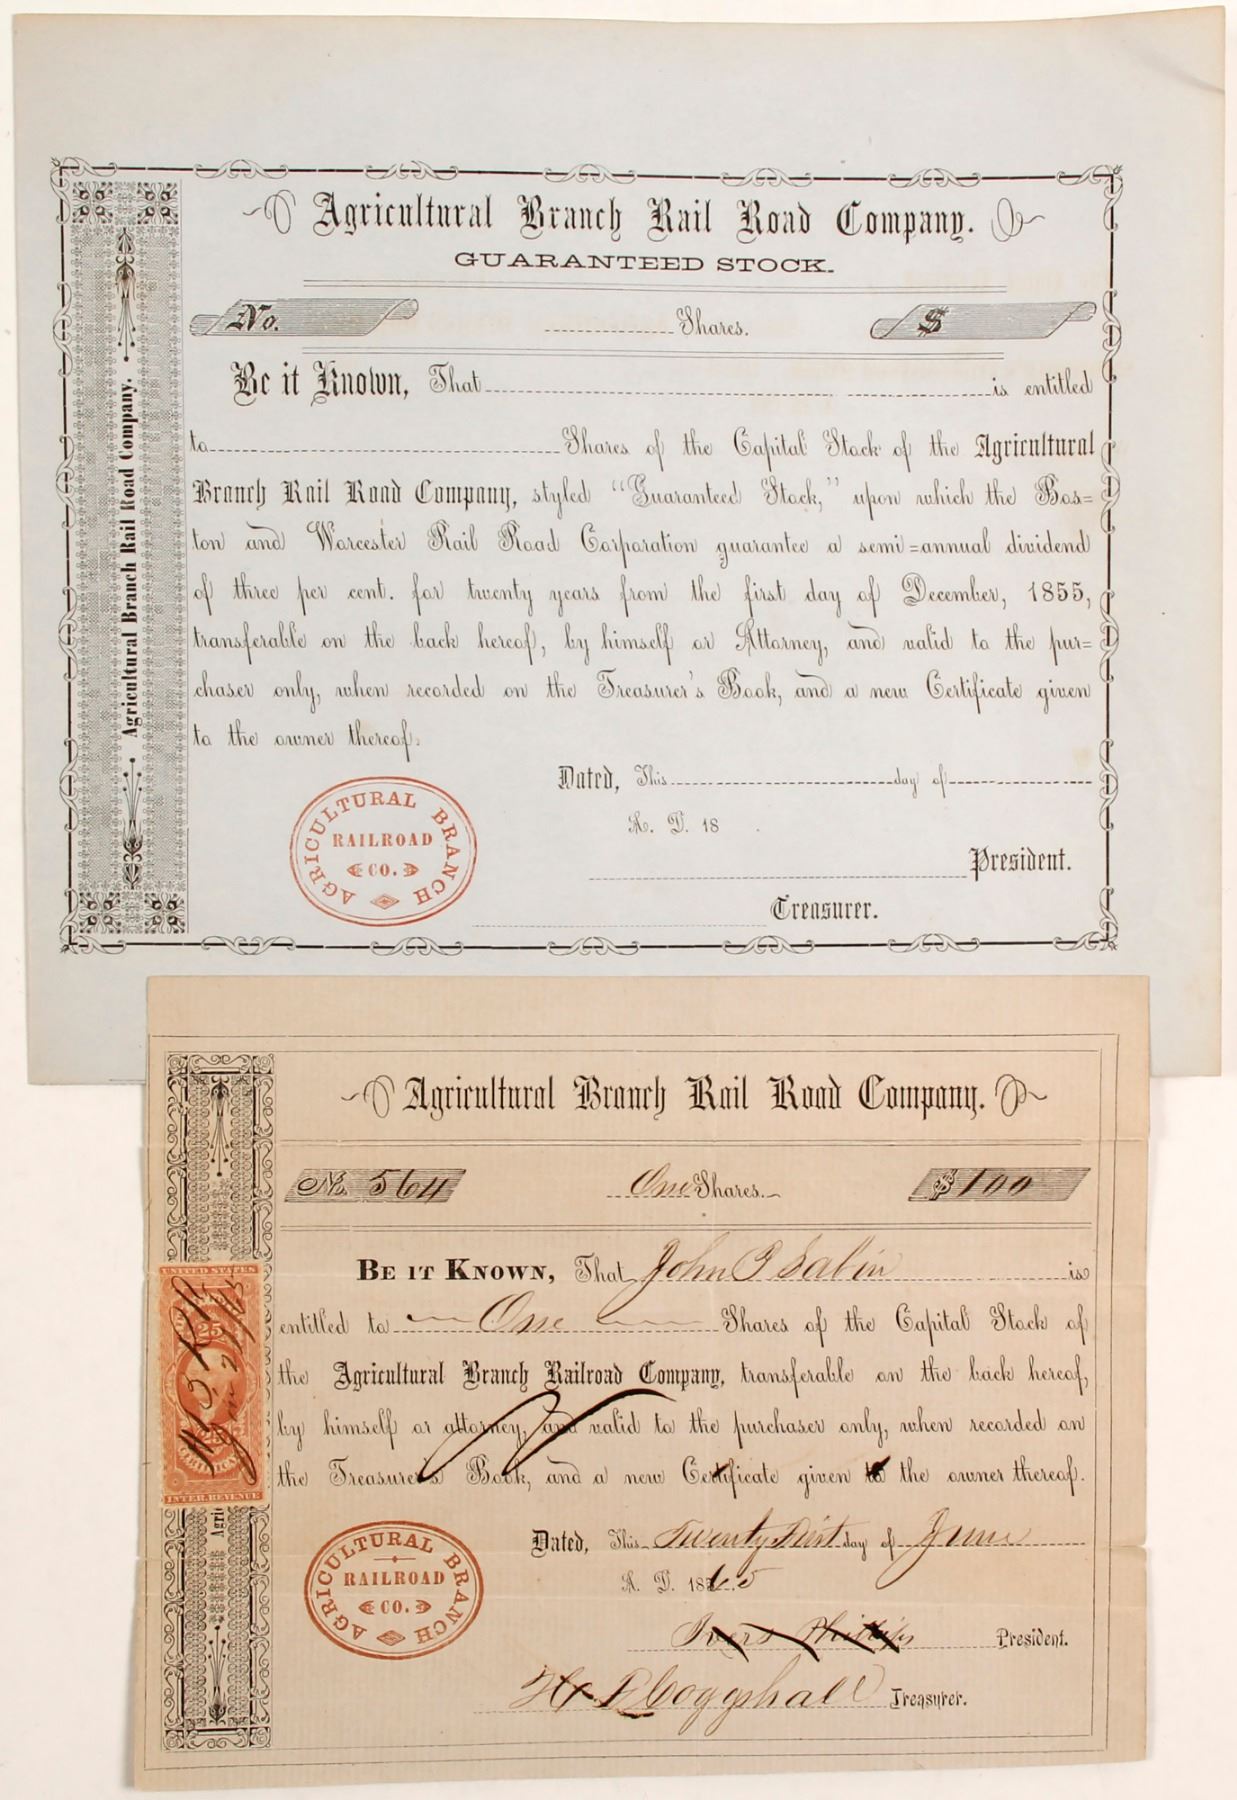 Agricultural Branch Rail Road Company.
GUARANTEED STOCK.
No. Shares. $
Be it Known, That is entitled
to Shares of the Capital Stock of the Agricultural
Branch Rail Road Company, styled “Guaranteed Stock,” upon which the Bos=
ton and Worcester Rail Road Corporation guarantee a semi=annual dividend
of three per cent. for twenty years from the first day of December, 1855,
transferable on the back hereof, by himself or Attorney, and valid to the pur=
chaser only, when recorded on the Treasurer's Book, and a new Certificate given
to the owner thereof.
Dated, This day of
A. D. 18
President.
Treasurer.
Agricultural Branch Rail Road Company.
AGRICULTURAL BRANCH
RAILROAD
CO.
Agricultural Branch Rail Road Company.
No. 564 One Shares. $100
BE IT KNOWN, That John P Sabin is
entitled to One Shares of the Capital Stock of
the Agricultural Branch Railroad Company, transferable on the back hereof,
by himself or attorney, and valid to the purchaser only, when recorded on
the Treasurer's Book, and a new Certificate given to the owner thereof.
Dated, This Twenty First day of June
A. D. 1865
Ivers Phillips President.
Coggshall Treasurer.
AGRICULTURAL BRANCH
RAILROAD
CO.
UNITED STATES
25
CERTIFICATE
INTER. REVENUE
Agri